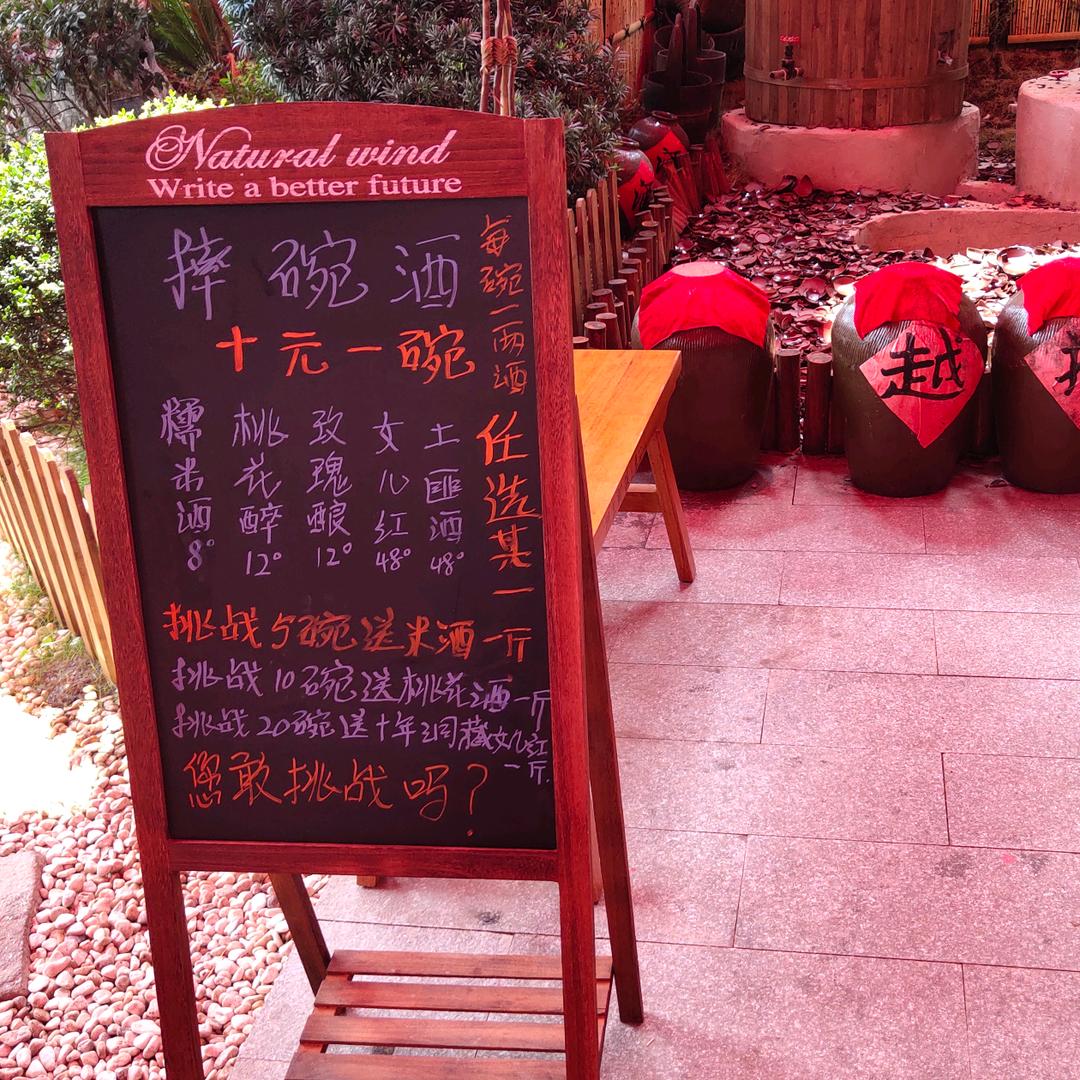 Natural wind
Write a better future
摔碗酒
十元一碗
每碗一两酒
任选其一
糯米酒8°
桃花醉12°
玫瑰酿12°
女儿红48°
土匪酒48°
挑战5碗送米酒一斤
挑战10碗送桃花酒一斤
挑战20碗送十年洞藏女儿红一斤.
您敢挑战吗?
越